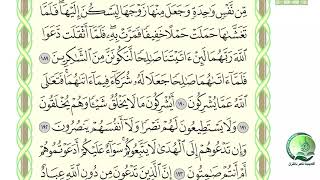 مِّن نَّفْسٍ وَٰحِدَةٍ وَجَعَلَ مِنْهَا زَوْجَهَا لِيَسْكُنَ إِلَيْهَا فَلَمَّا
تَغَشَّىٰهَا حَمَلَتْ حَمْلًا خَفِيفًا فَمَرَّتْ بِهِۦ فَلَمَّآ أَثْقَلَت دَّعَوَا
ٱللَّهَ رَبَّهُمَا لَئِنْ ءَاتَيْتَنَا صَٰلِحًا لَّنَكُونَنَّ مِنَ ٱلشَّٰكِرِينَ ١٨٩
فَلَمَّآ ءَاتَىٰهُمَا صَٰلِحًا جَعَلَا لَهُۥ شُرَكَآءَ فِيمَآ ءَاتَىٰهُمَا فَتَعَٰلَى
ٱللَّهُ عَمَّا يُشْرِكُونَ ١٩٠ أَيُشْرِكُونَ مَا لَا يَخْلُقُ شَيْـًٔا وَهُمْ يُخْلَقُونَ
١٩١ وَلَا يَسْتَطِيعُونَ لَهُمْ نَصْرًا وَلَآ أَنفُسَهُمْ يَنصُرُونَ ١٩٢
وَإِن تَدْعُوهُمْ إِلَى ٱلْهُدَىٰ لَا يَتَّبِعُوكُمْ سَوَآءٌ عَلَيْكُمْ أَدَعَوْتُمُوهُمْ
أَمْ أَنتُمْ صَٰمِتُونَ ١٩٣ إِنَّ ٱلَّذِينَ تَدْعُونَ مِن دُونِ ٱللَّهِ عِبَادٌ